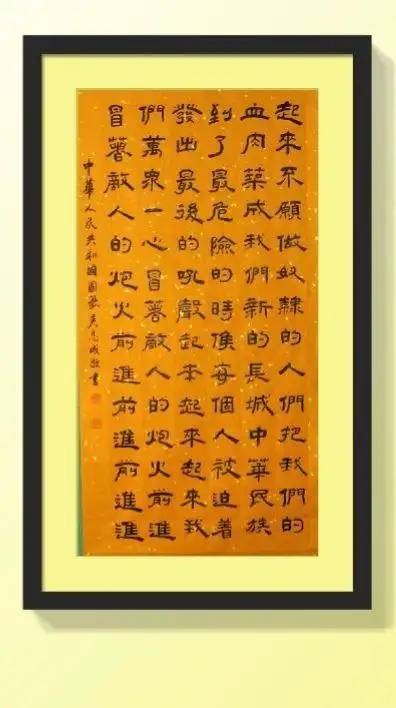 起來不願做奴隸的人們把我們的
血肉築成我們新的長城中華民族
到了最危險的時候每個人被迫着
發出最後的吼聲起来起來起來我
們萬眾一心冒著敵人的炮火前進
冒著敵人的炮火前進前進前進進
中華人民共和國國歌